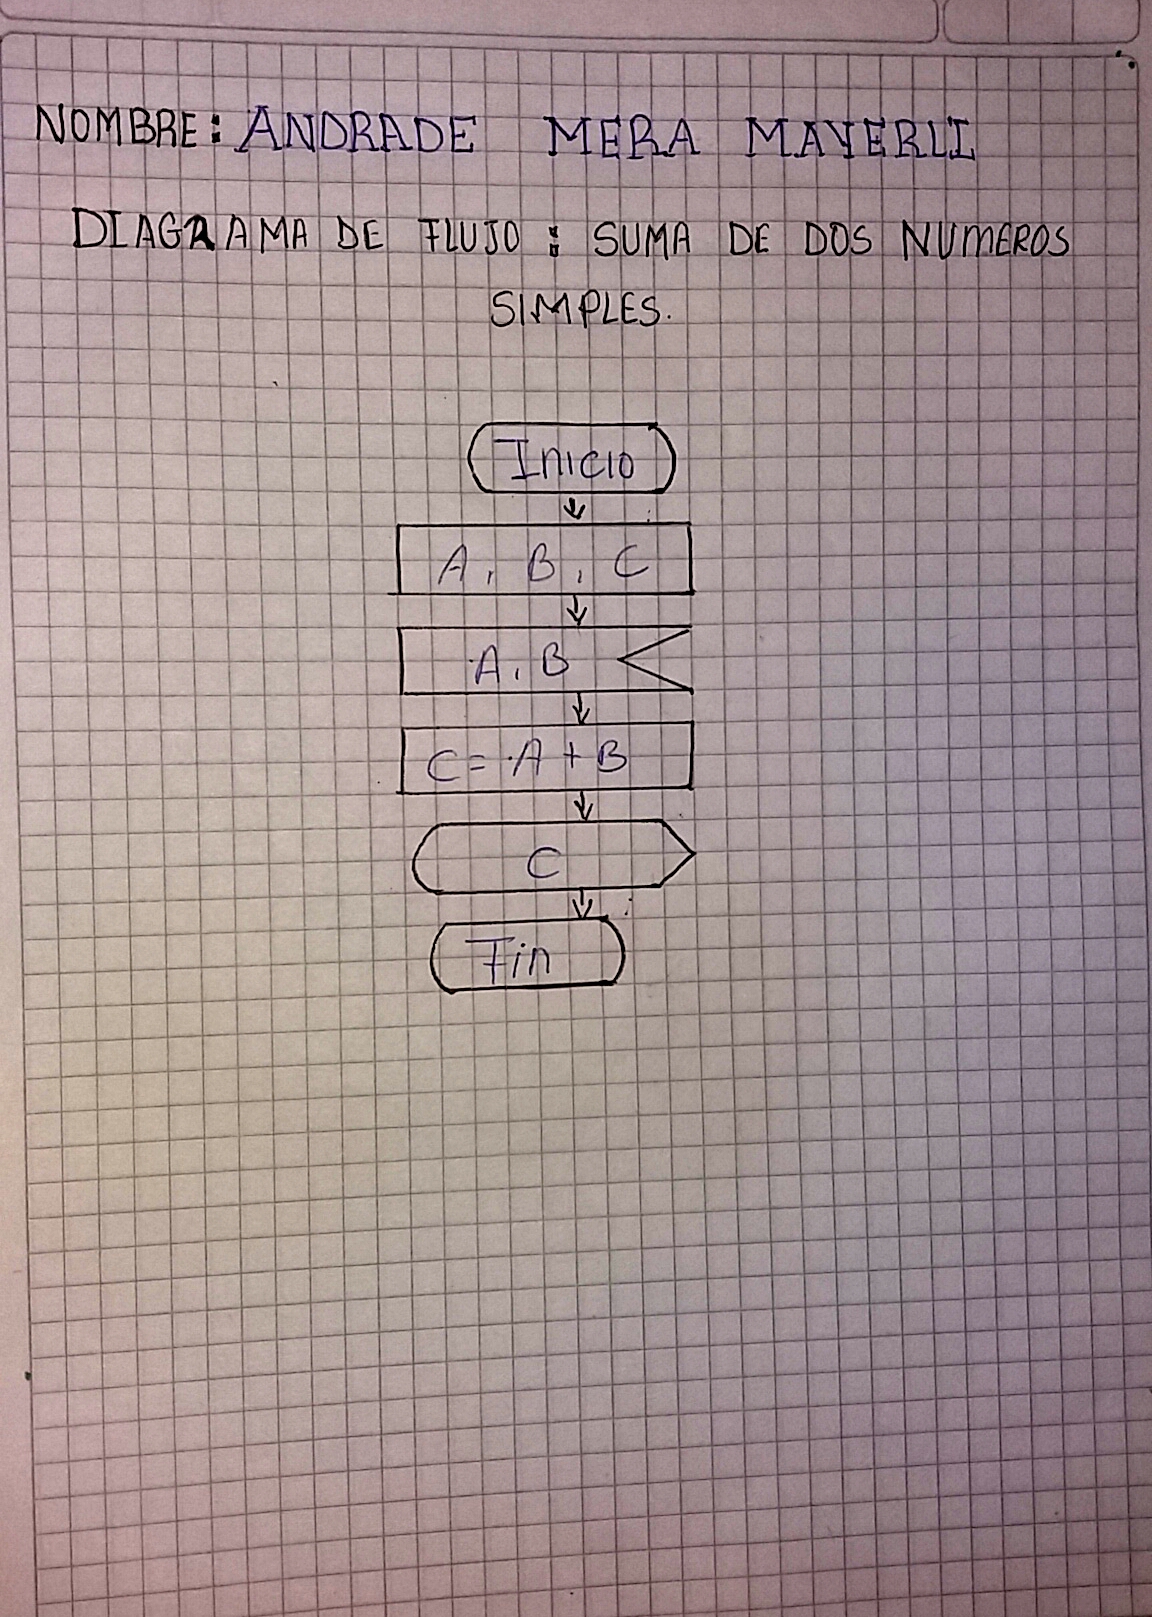 NOMBRE: ANDRADE MERA MAYERLI
DIAGRAMA DE FLUJO: SUMA DE DOS NUMEROS
SIMPLES.
Inicio
A, B, C
A, B
C = A + B
C
Fin